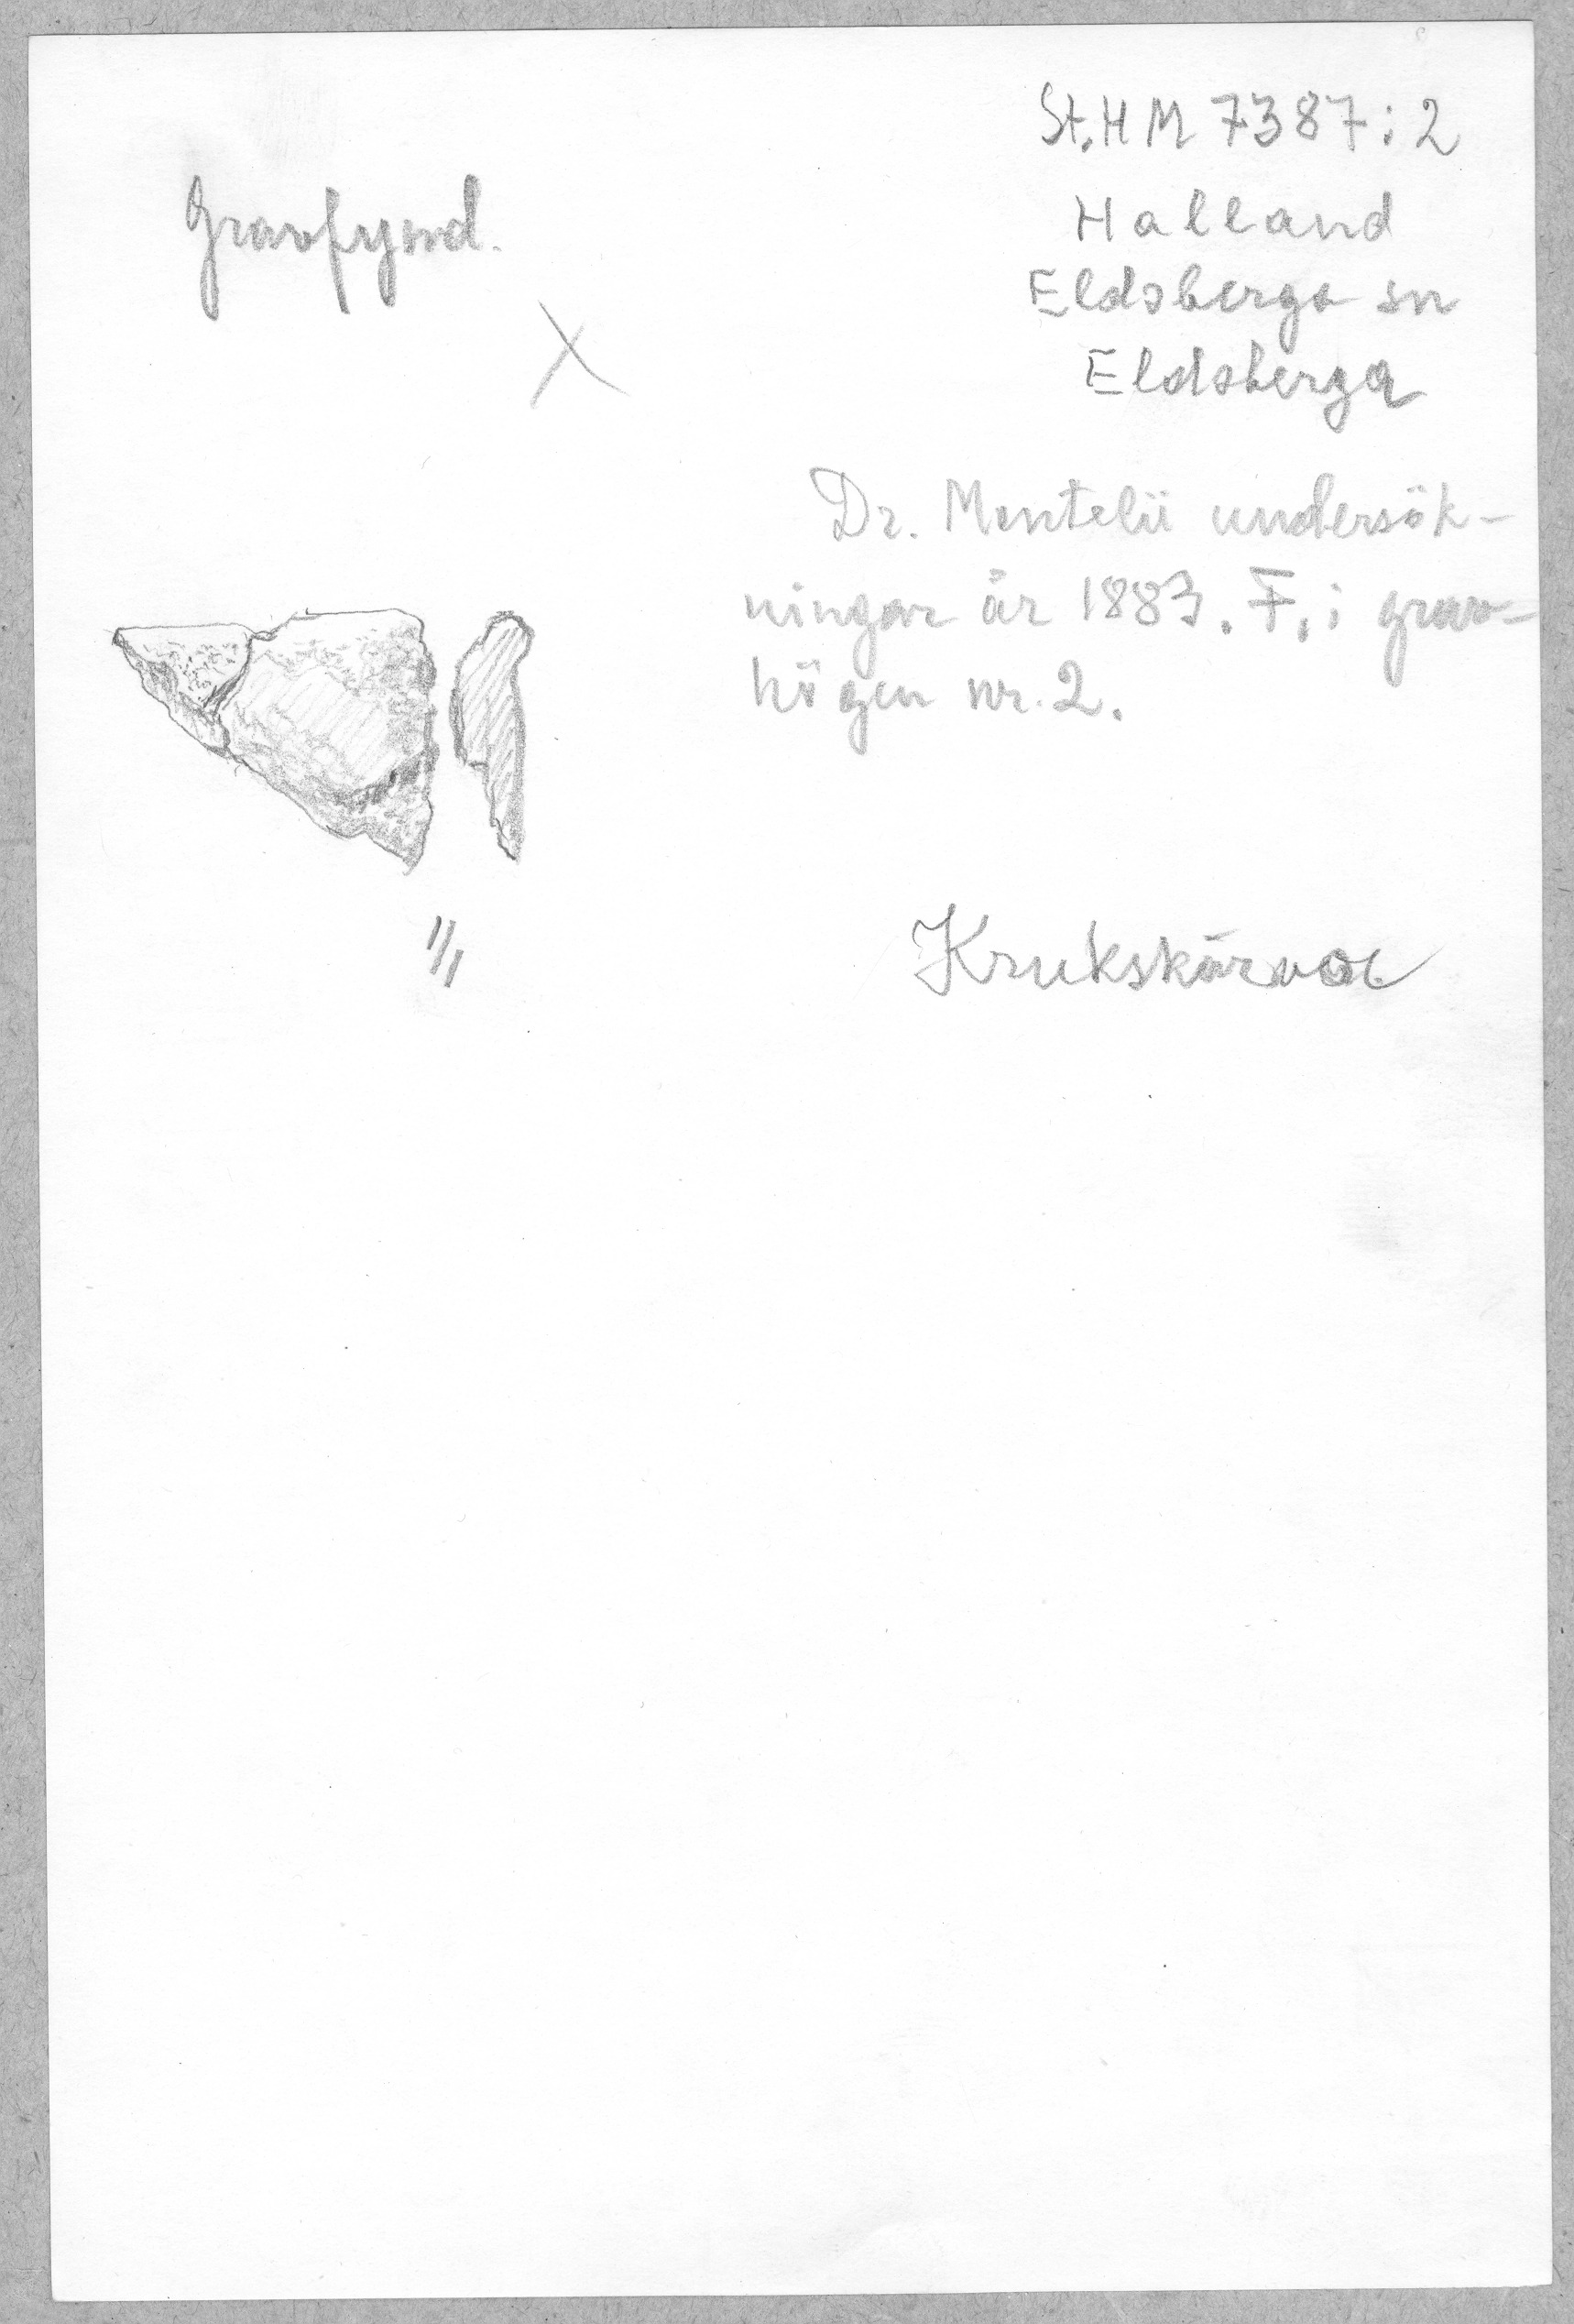 St. H M 7387:2
Halland
Eldsberga sn
Eldsberga
Gravfynd.
X
Dr. Montelii undersök-
ningar år 1883. F. i grav-
högen nr. 2.
1/1
Krukskärva